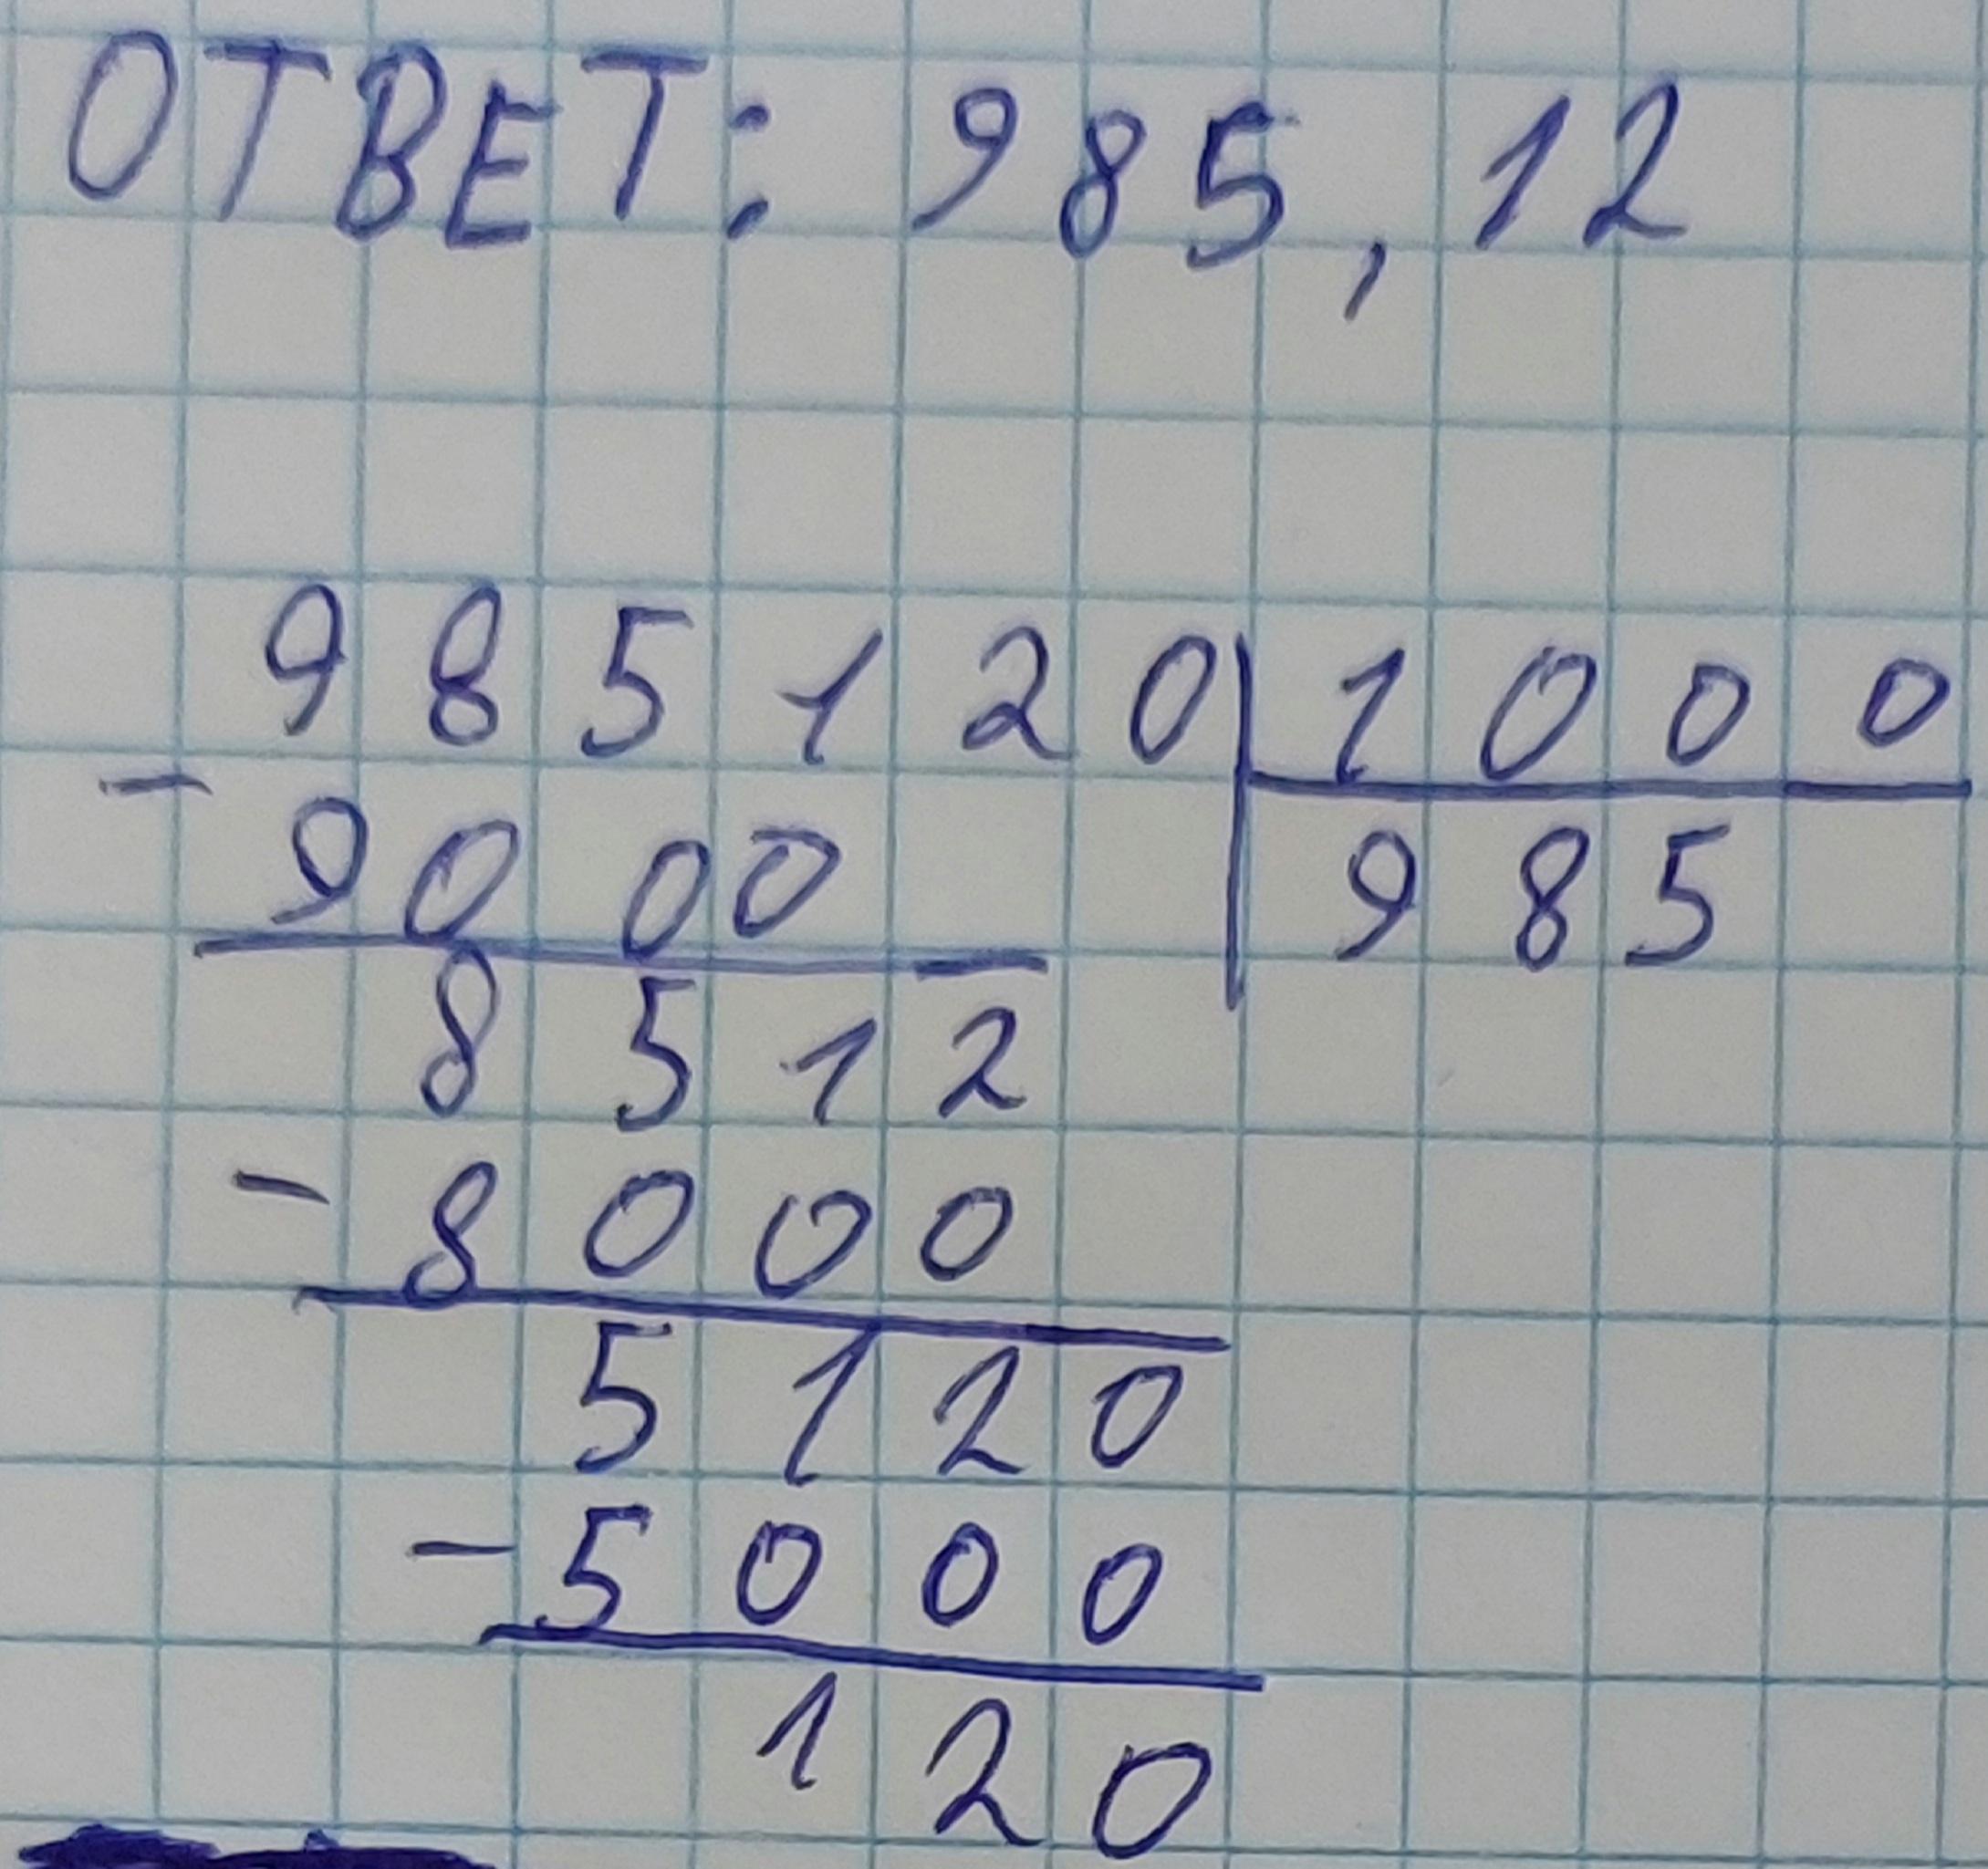 ОТВЕТ: 985,12
985120 1000
- 9000 985
8512
- 8000
5120
- 5000
120